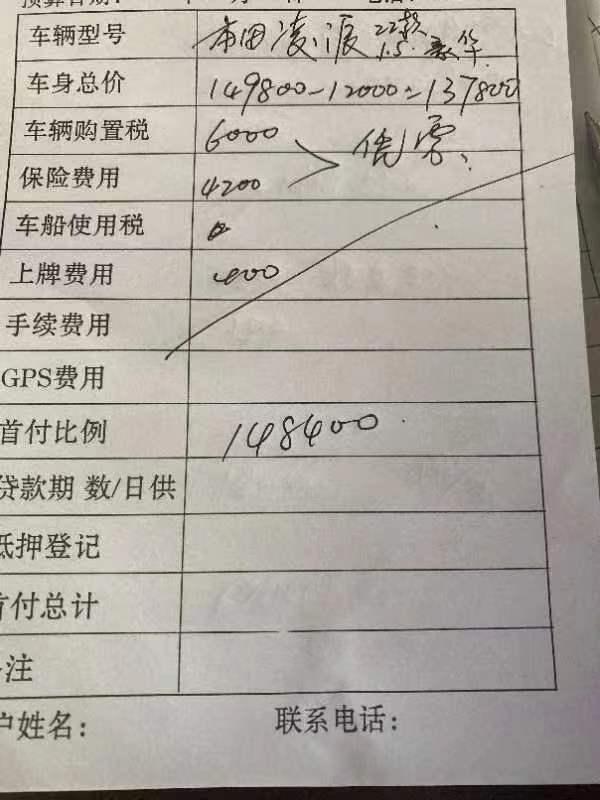 车辆型号 本田凌派 22款 1.5 豪华
车身总价 149800-12000=137800
车辆购置税 6000
凭票
保险费用 4200
车船使用税
上牌费用 400
手续费用
GPS费用
首付比例 148400
贷款期 数/日供
抵押登记
首付总计
注
户姓名： 联系电话：